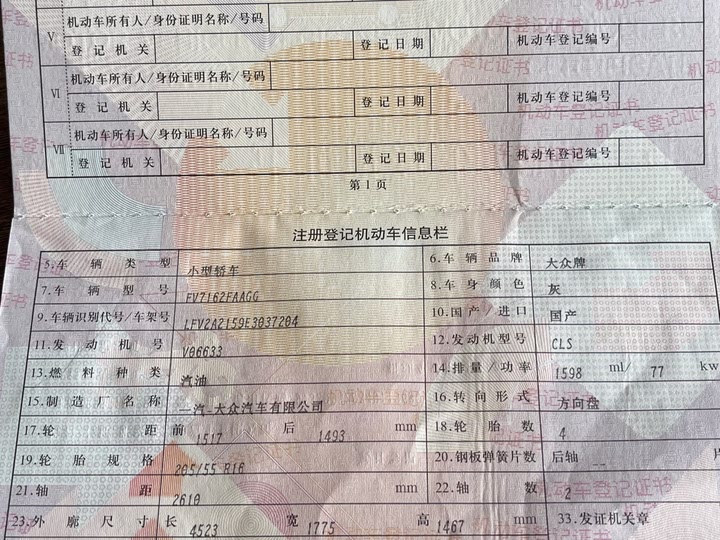 机动车所有人/身份证明名称/号码
Ⅴ 登记机关 登记日期 机动车登记编号
机动车所有人/身份证明名称/号码
Ⅵ 登记机关 登记日期 机动车登记编号
机动车所有人/身份证明名称/号码
Ⅶ 登记机关 登记日期 机动车登记编号
第1页
注册登记机动车信息栏
5.车辆类型 小型轿车 6.车辆品牌 大众牌
7.车辆型号 FV7162FAAGG 8.车身颜色 灰
9.车辆识别代号/车架号 LFV2A2159E3037204 10.国产/进口 国产
11.发动机号 V06633 12.发动机型号 CLS
13.燃料种类 汽油 14.排量/功率 1598 ml/ 77 kw
15.制造厂名称 一汽-大众汽车有限公司 16.转向形式 方向盘
17.轮距 前 1517 后 1493 mm 18.轮胎数 4
19.轮胎规格 205/55 R16 20.钢板弹簧片数 后轴 -- 片
21.轴距 2610 mm 22.轴数 2
23.外廓尺寸 长 4523 宽 1775 高 1467 mm 33.发证机关章